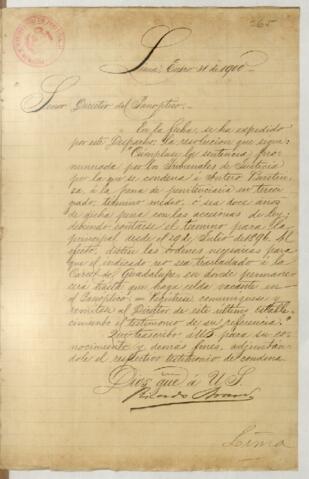 265
Lima, Enero 31 de 1900
Señor Director del Panóptico.
En la fecha, se ha expedido
por este Despacho, la resolución que sigue:
"Cúmplase la sentencia pro-
nunciada por los Tribunales de Justicia
por la que se condena á Antero
á la pena de penitenciaria en tercer
grado, término medio, ó sea doce años
de dicha pena con las accesorias de ley;
debiendo contarse el término para la
principal desde el 19 de Julio de 1896. Al
efecto, dicten las órdenes necesarias para
que el indicado reo sea trasladado á la
Carcel de Guadalupe, en donde permane-
cerá hasta que haya celda vacante en
el Panóptico; Regístrese, comuníquese y
remítase al Director de este último estable-
cimiento el testimonio de su referencia."
Que trascribo á US. para su co-
nocimiento y demás fines, adjuntán-
dole el respectivo testimonio de condena.
Dios gue á U.S.
Ricardo
Lima